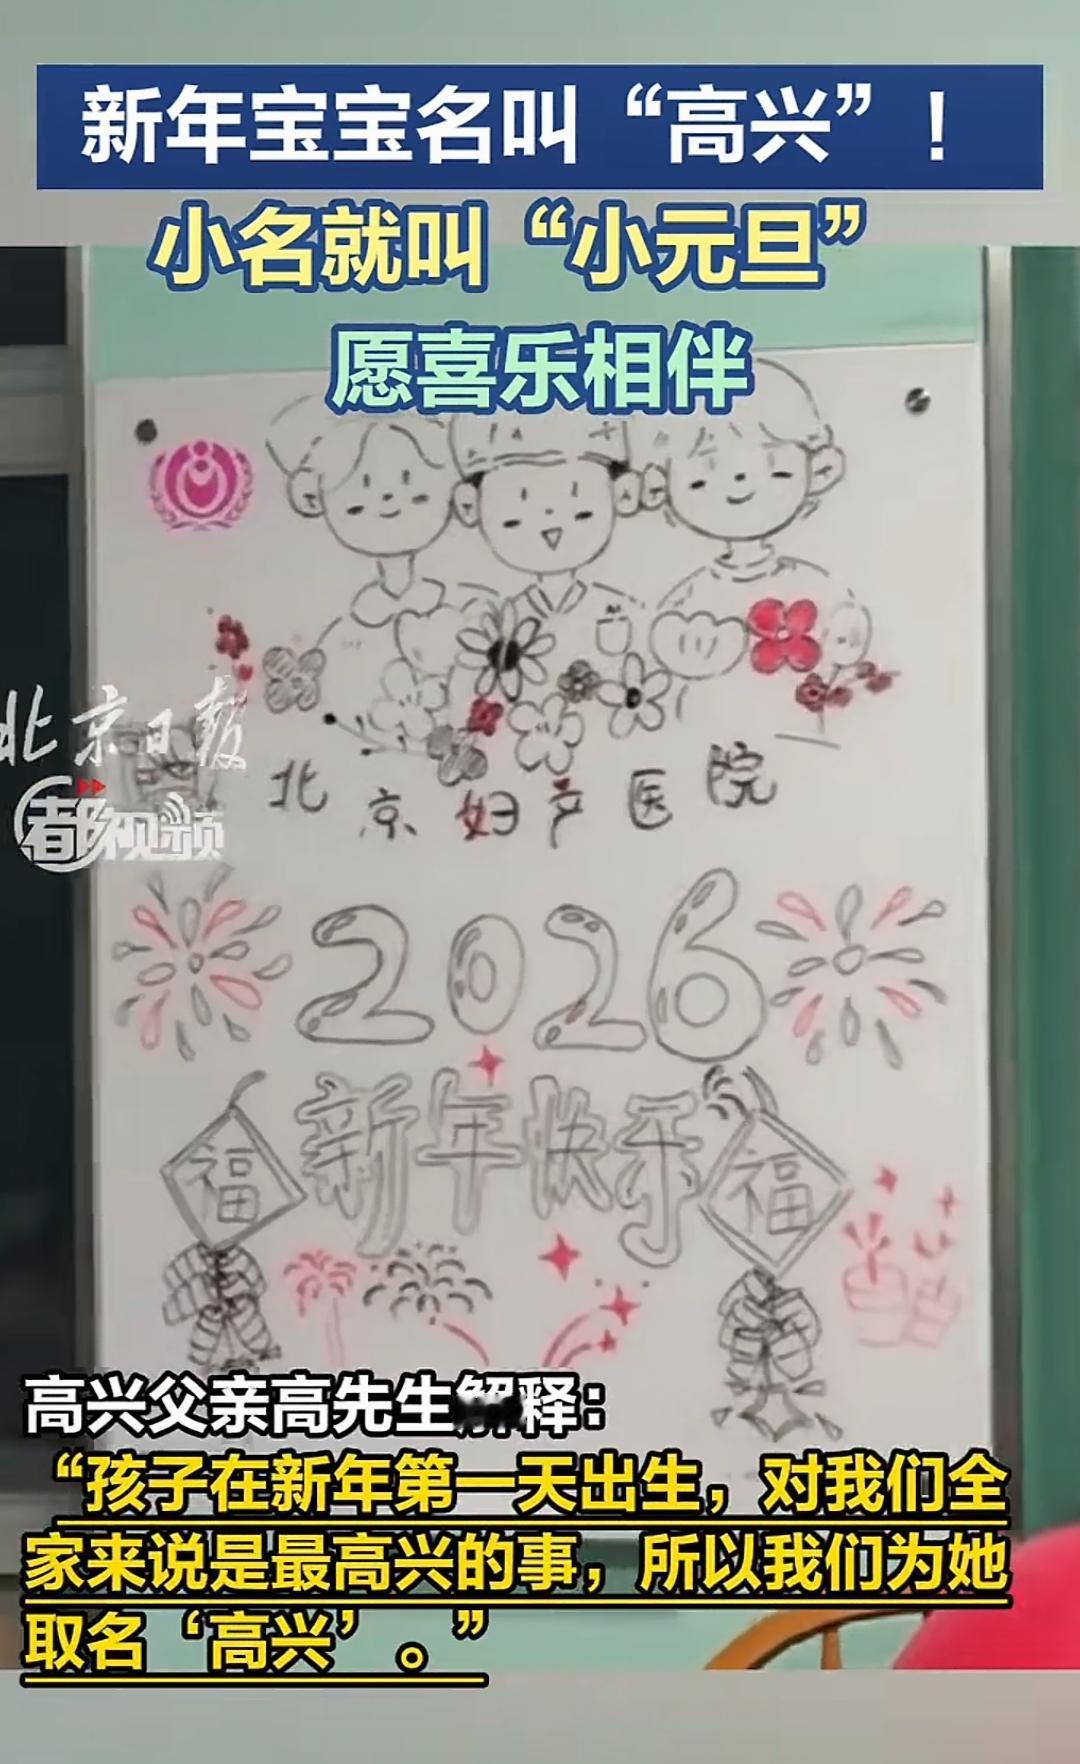 新年宝宝名叫“高兴”！
小名就叫“小元旦”
愿喜乐相伴
北京日报
都视频
北京妇产医院
2026
新年快乐
福
福
高兴父亲高先生解释：
“孩子在新年第一天出生，对我们全
家来说是最高兴的事，所以我们为她
取名‘高兴’。”